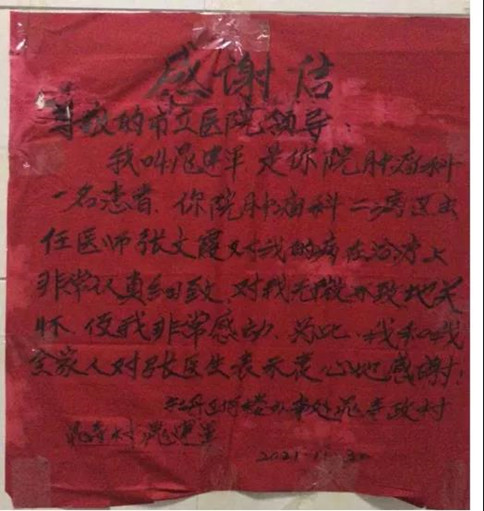 感谢信
尊敬的市立医院领导：
我叫晁建军是你院肿瘤科
一名患者，你院肿瘤科二病区主
任医师张文霞对我的病在治疗上
非常认真细致，对我无微不致地关
怀，使我非常感动，为此，我和我
全家人对张医生表示衷心地感谢！
办事处晁寺政村
晁寺村 晁建军
2021.11.30